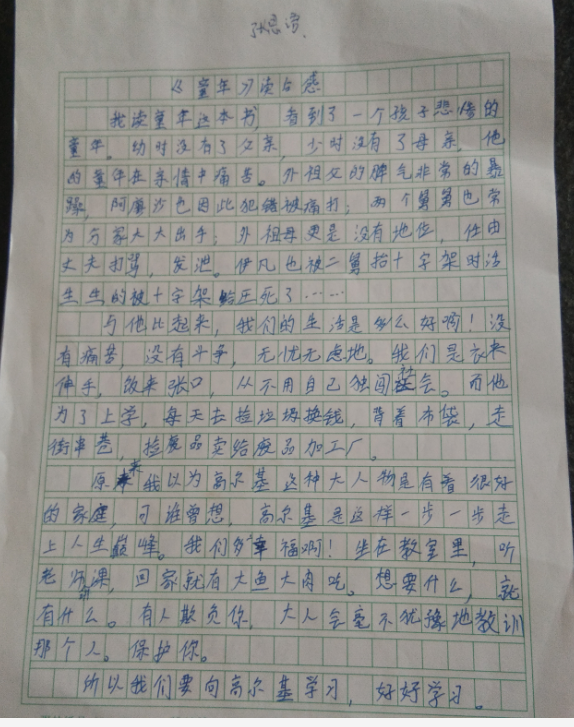 《童年》读后感
我读童年这本书，看到了一个孩子悲惨的
童年。幼时没有了父亲，少时没有了母亲，他
的童年在亲情中痛苦。外祖父的脾气非常的暴
躁，阿廖沙也因此犯错被痛打；两个舅舅也常
为分家大大出手；外祖母更是没有地位，任由
丈夫打骂，发泄。伊凡也被二舅抬十字架时活
生生的被十字架给压死了……
与他比起来，我们的生活是多么好啊！没
有痛苦，没有斗争，无忧无虑地。我们是衣来
伸手，饭来张口，从不用自己独闯社会。而他
为了上学，每天去捡垃圾换钱，背着布袋，走
街串巷，捡废品卖给废品加工厂。
原来我以为高尔基这种大人物是有着很好
的家庭，可谁曾想，高尔基是这样一步一步走
上人生巅峰。我们多幸福啊！坐在教室里，听
老师课，回家就有大鱼大肉吃。想要什么，就
有什么。有人欺负你，大人会毫不犹豫地教训
那个人。保护你。
所以我们要向高尔基学习，好好学习。